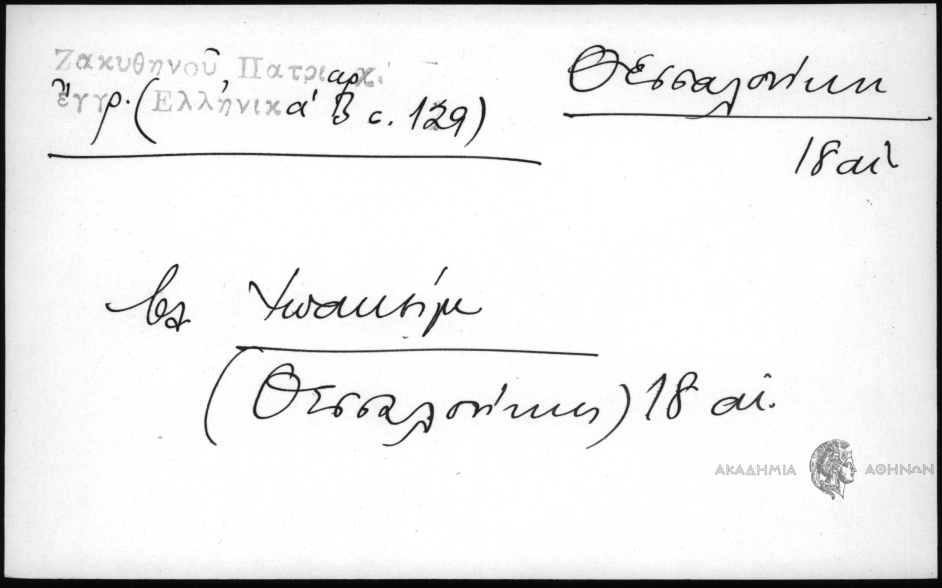 Ζακυθηνοῦ Πατριαρχ.
ἔγγρ. (Ἑλληνικά Β σ. 129)
Θεσσαλονίκη
18 αἰ
βλ Ἰωακείμ
(Θεσσαλονίκης) 18 αἰ.
ΑΚΑΔΗΜΙΑ ΑΘΗΝΩΝ